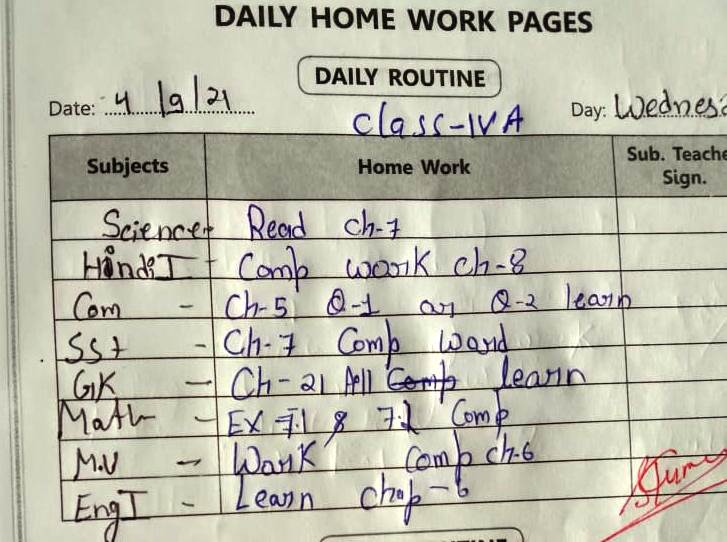 DAILY HOME WORK PAGES
DAILY ROUTINE
Date: 4/9/21 Day: Wednes
Class-IV A
Subjects Home Work Sub. Teache
Sign.
Science Read ch-7
Hindi I - Comp work ch-8
Com - Ch-5 Q-1 Q-2 learn
SSt - Ch-7 Comp word
GK - Ch-21 All Comp learn
Math - EX 7.1 & 7.2 Comp
M.V - Work Comp ch-6
Eng I - Learn chap-6